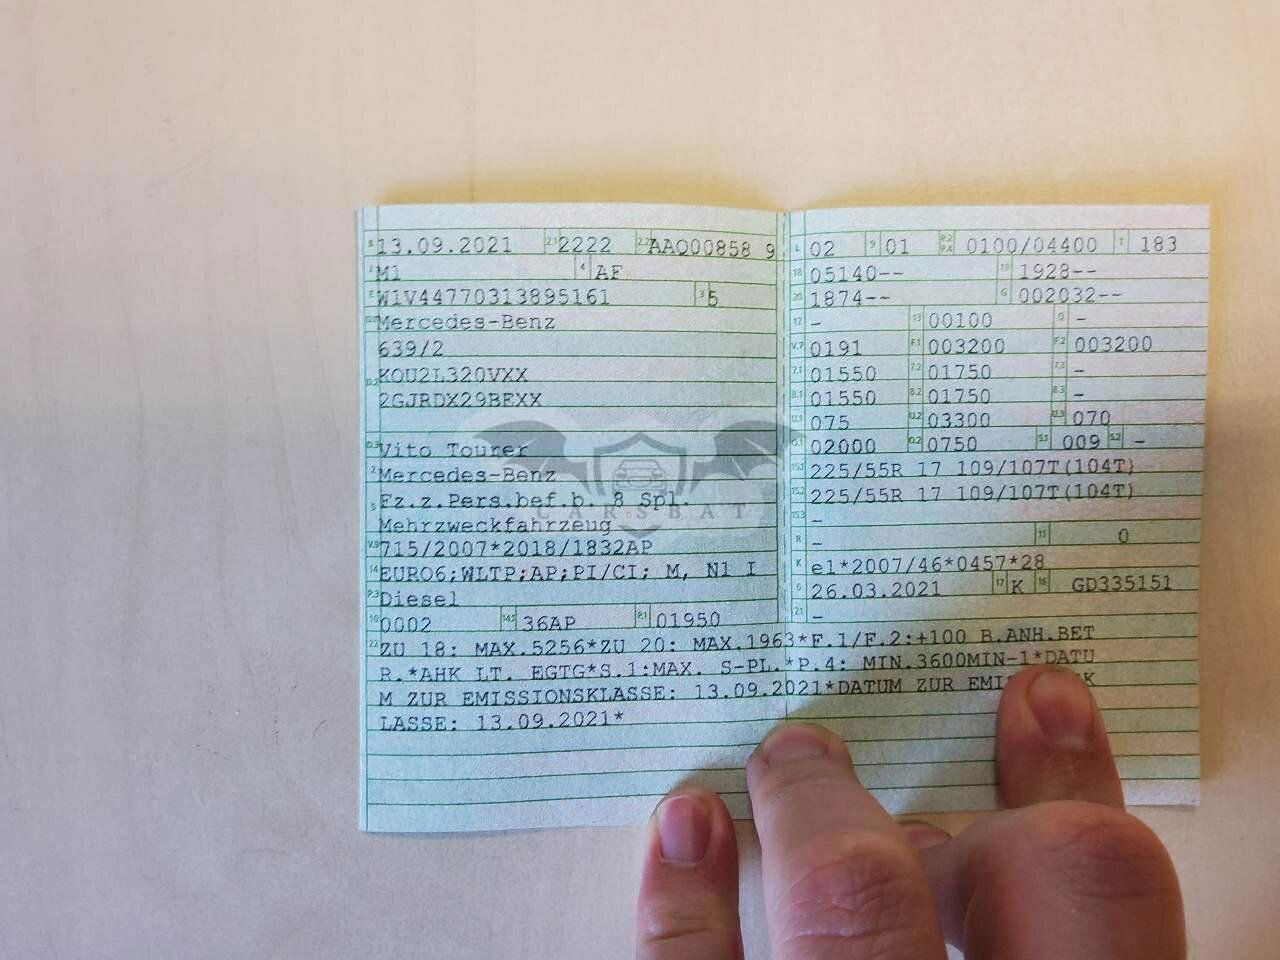 B 13.09.2021 2.1 2222 2.2 AAQ00858 9
J M1 4 AF
E W1V44770313895161 3 5
D.1 Mercedes-Benz
639/2
D.2 KOU2L320VXX
2GJRDX29BEXX
D.3 Vito Tourer
2 Mercedes-Benz
5 Fz.z.Pers.bef.b. 8 Spl.
Mehrzweckfahrzeug
V.9 715/2007*2018/1832AP
14 EURO6;WLTP;AP;PI/CI; M, N1 I
P.3 Diesel
10 0002 14.1 36AP P.1 01950
L 02 9 01 P.2 P.4 0100/04400 T 183
18 05140-- 19 1928--
20 1874-- G 002032--
12 - 13 00100 Q -
V.7 0191 F.1 003200 F.2 003200
7.1 01550 7.2 01750 7.3 -
8.1 01550 8.2 01750 8.3 -
U.1 075 U.2 03300 U.3 070
O.1 02000 O.2 0750 S.1 009 S.2 -
15.1 225/55R 17 109/107T(104T)
15.2 225/55R 17 109/107T(104T)
15.3 -
R - 11 0
K e1*2007/46*0457*28
6 26.03.2021 17 K 16 GD335151
21 -
22 ZU 18: MAX.5256*ZU 20: MAX.1963*F.1/F.2:+100 B.ANH.BET
R.*AHK LT. EGTG*S.1:MAX. S-PL.*P.4: MIN.3600MIN-1*DATU
M ZUR EMISSIONSKLASSE: 13.09.2021*DATUM ZUR K
LASSE: 13.09.2021*
CARSBAT